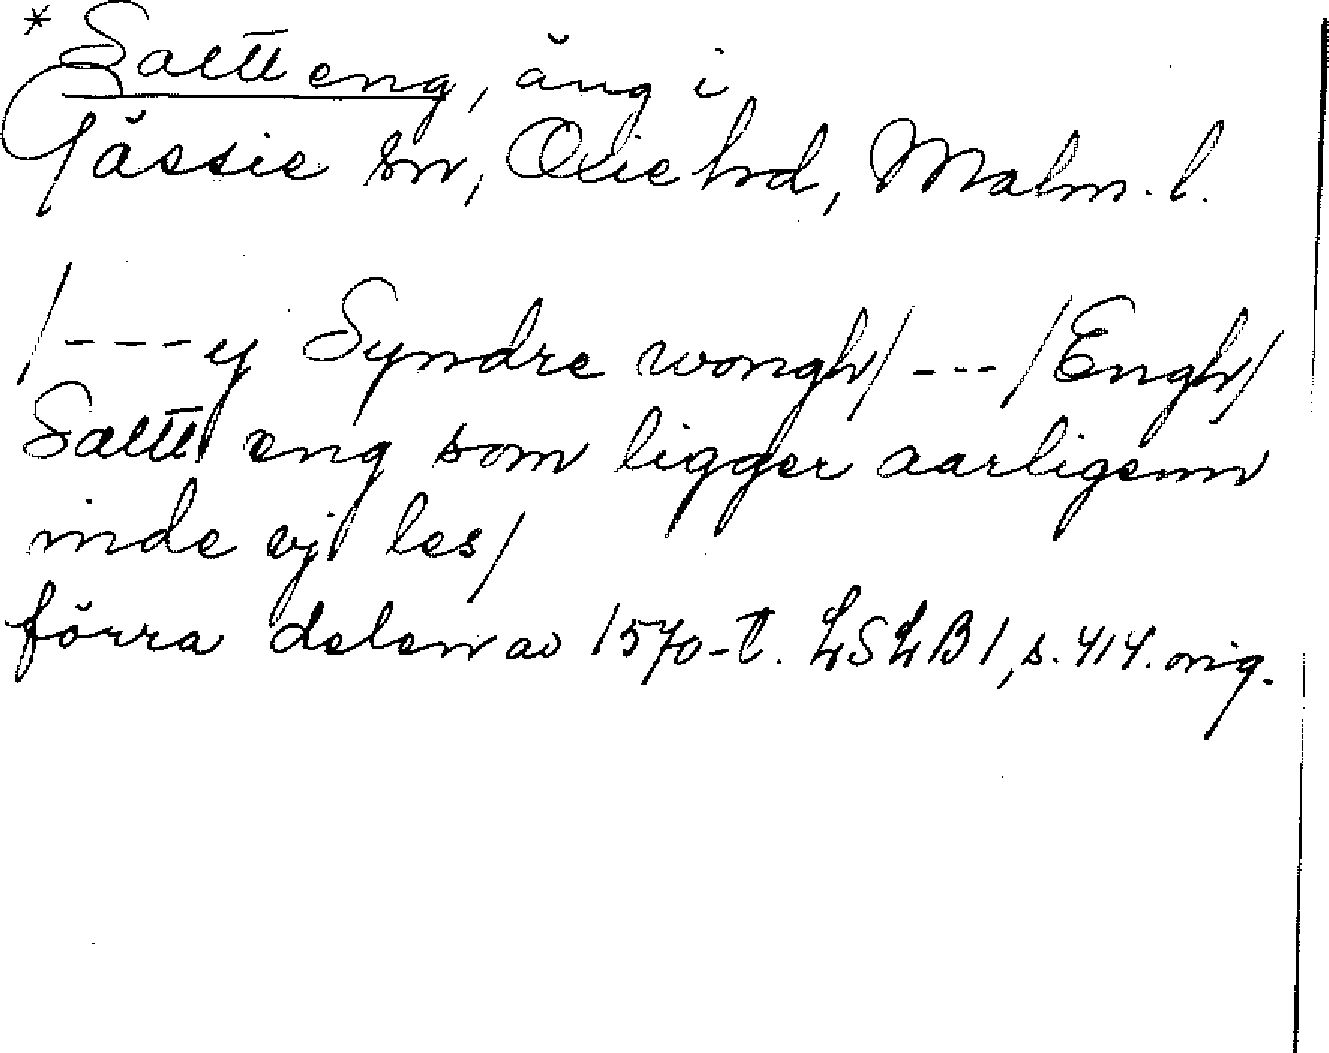 *Saltt eng, äng i
Gässie sn, Oxie hrd, Malm. l.
/---y Syndre wongh/ --- /Engh/
Saltt eng som ligger aarligenn
inde vj les/
förra delen av 1570-t. LSLB1, s. 414. orig.